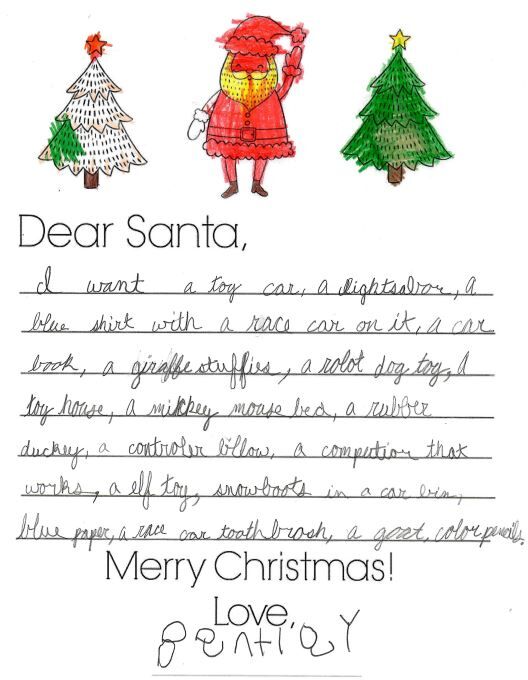 Dear Santa,
I want a toy car, a lightsabor, a
blue shirt with a race car on it, a car
book, a giraffe stuffies, a robot dog toy, a
toy house, a mikkey mouse bed, a rubber
duckey, a controler billow, a computior that
works, a elf toy, snowboots in a car bin,
blue paper, a race car toothbrosh, a goat, color pencils.
Merry Christmas!
Love,
BentlEY